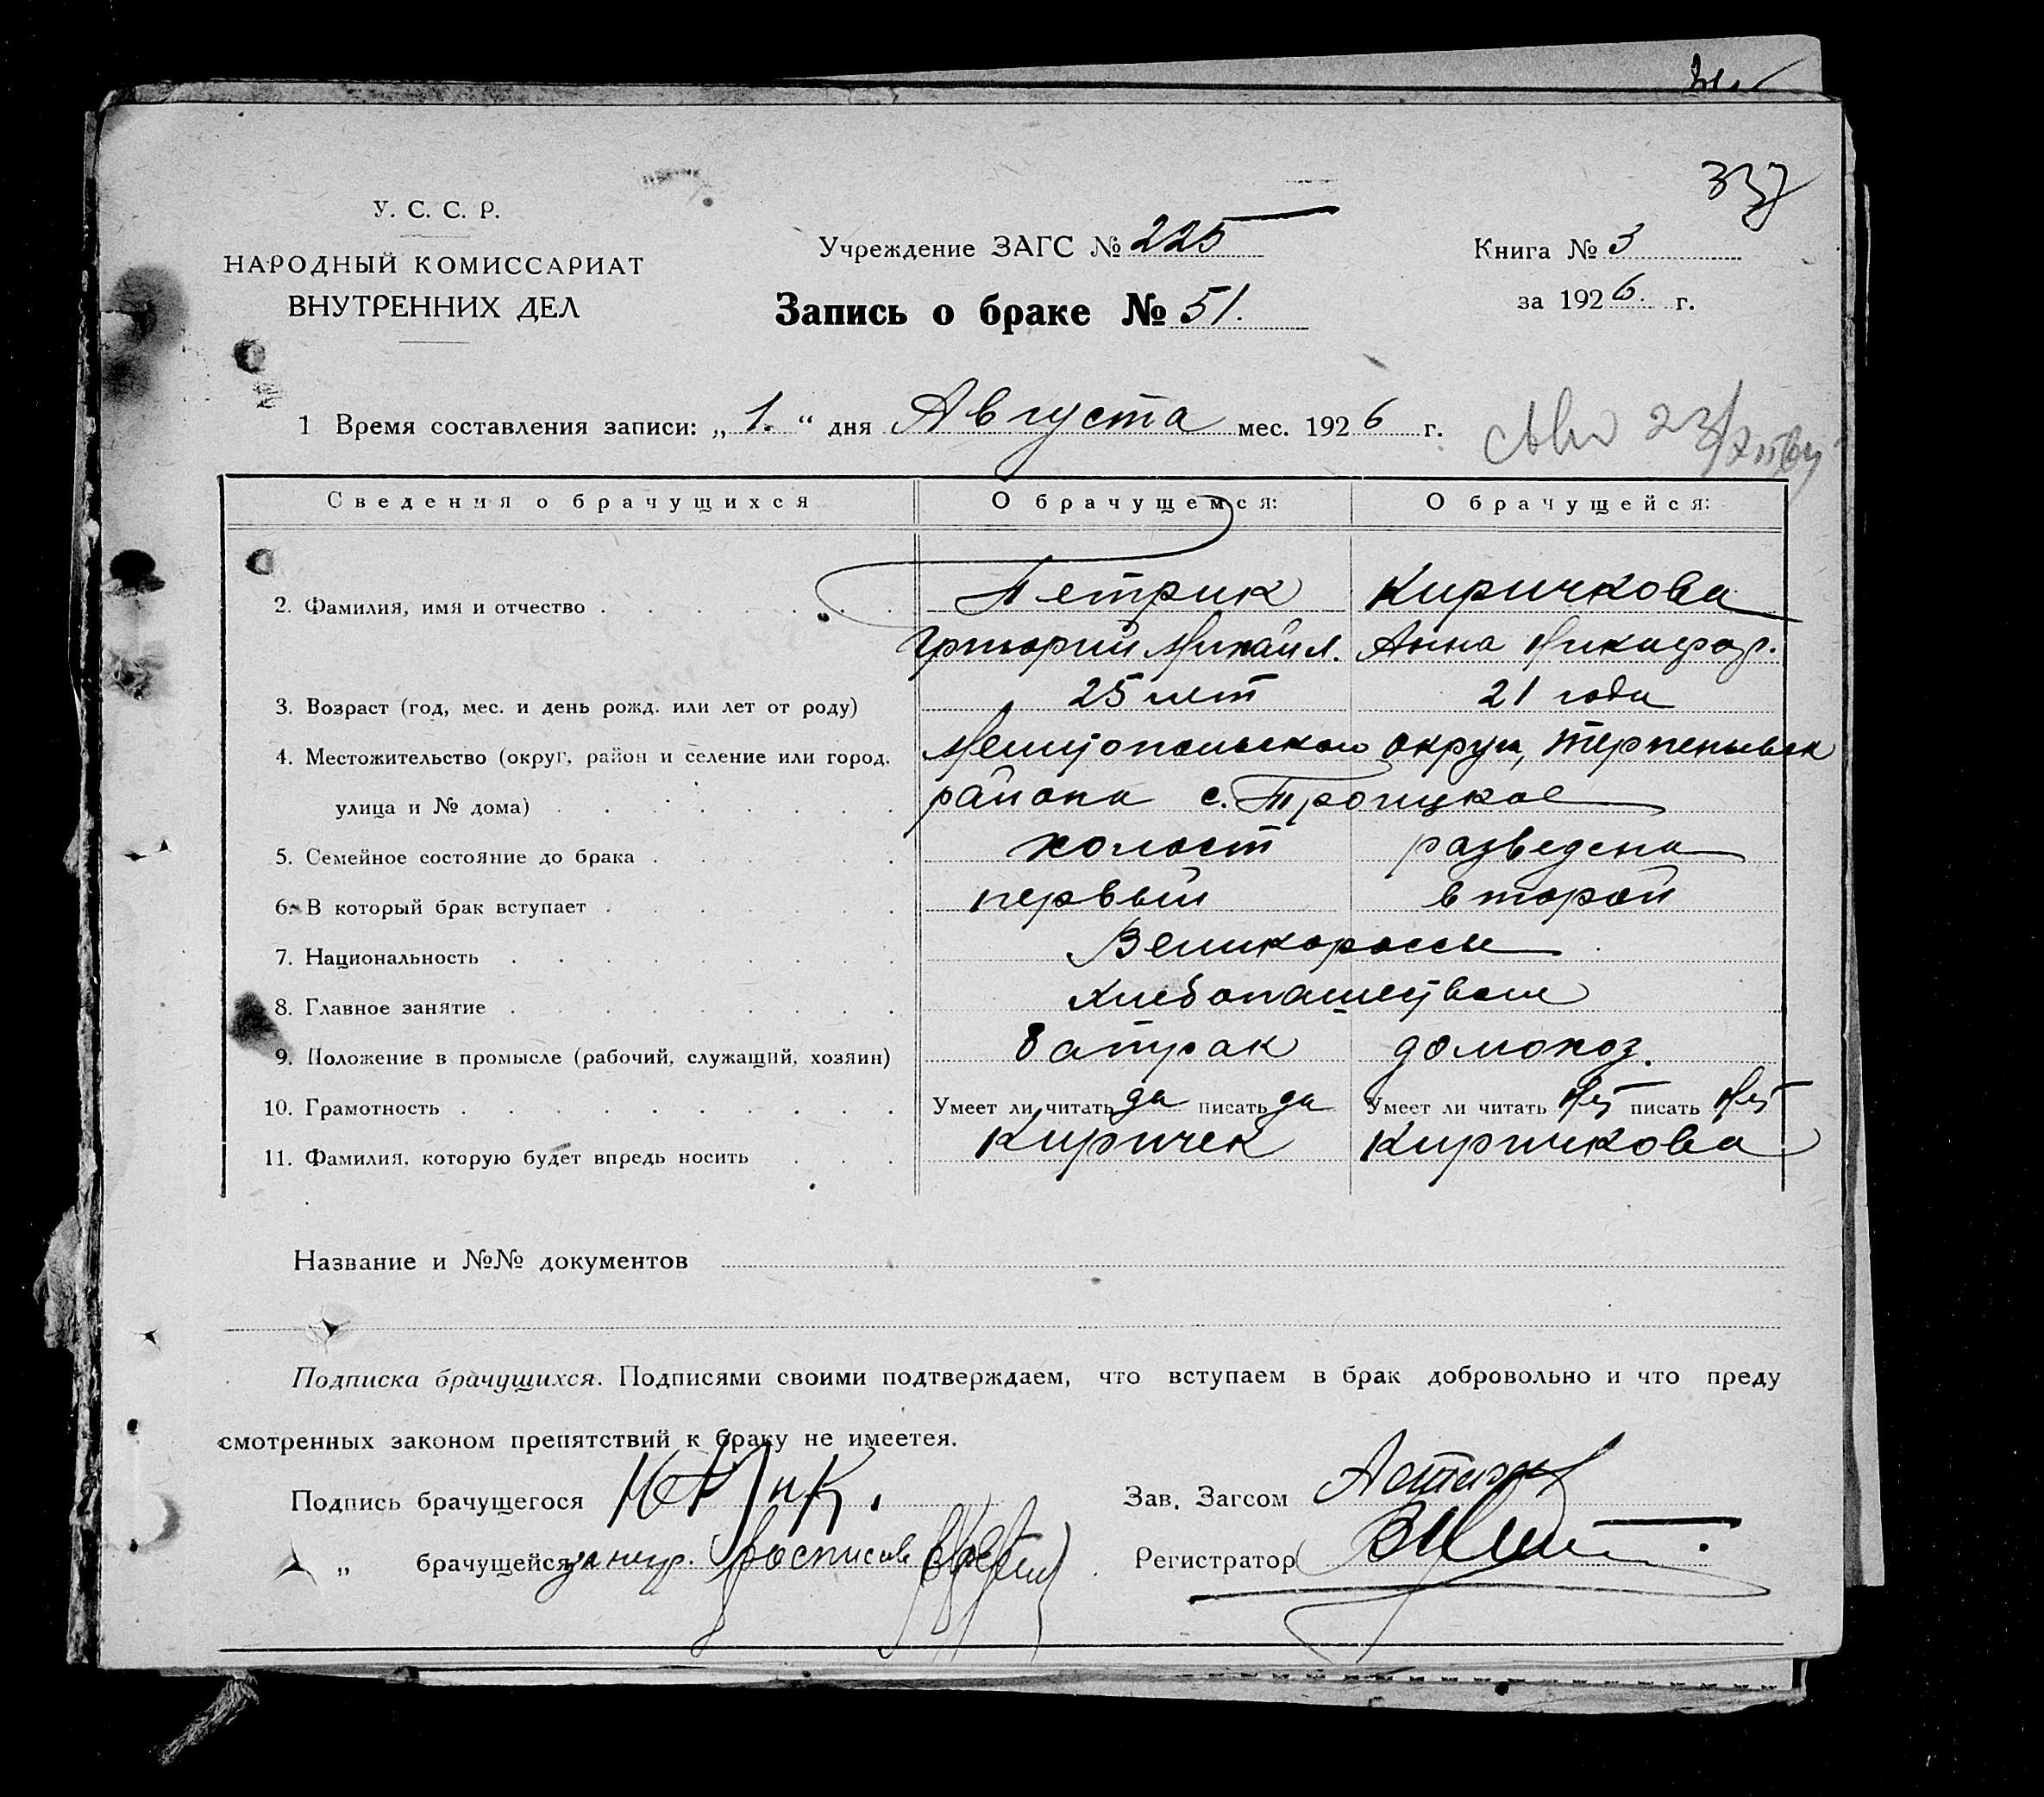 337
У. С. С. Р.
НАРОДНЫЙ КОМИССАРИАТ
ВНУТРЕННИХ ДЕЛ
Учреждение ЗАГС № 225
Запись о браке № 51.
Книга № 3
за 1926. г.
1 Время составления записи: „ 1. “ дня Августа мес. 1926 г.
23/
Сведения о брачущихся О брачущемся: О брачущейся:
2. Фамилия, имя и отчество Петрик Киричкова
Григорий Михаил. Анна Никифор.
3. Возраст (год, мес. и день рожд. или лет от роду) 25 лет 21 года
4. Местожительство (округ, район и селение или город, Мелитопольского округа, Терпеньевск
улица и № дома) района с. Троицкое
5. Семейное состояние до брака холост разведена
6. В который брак вступает первый второй
7. Национальность Великороссы
8. Главное занятие Хлебопашеством
9. Положение в промысле (рабочий, служащий, хозяин) батрак домохоз.
10. Грамотность Умеет ли читать да писать да Умеет ли читать нет писать нет
11. Фамилия, которую будет впредь носить Киричек Киричкова
Название и №№ документов
Подписка брачущихся. Подписями своими подтверждаем, что вступаем в брак добровольно и что преду
смотренных законом препятствий к браку не имеетея.
Подпись брачущегося Зав. Загсом
„ брачущейся за негр. росписов Регистратор